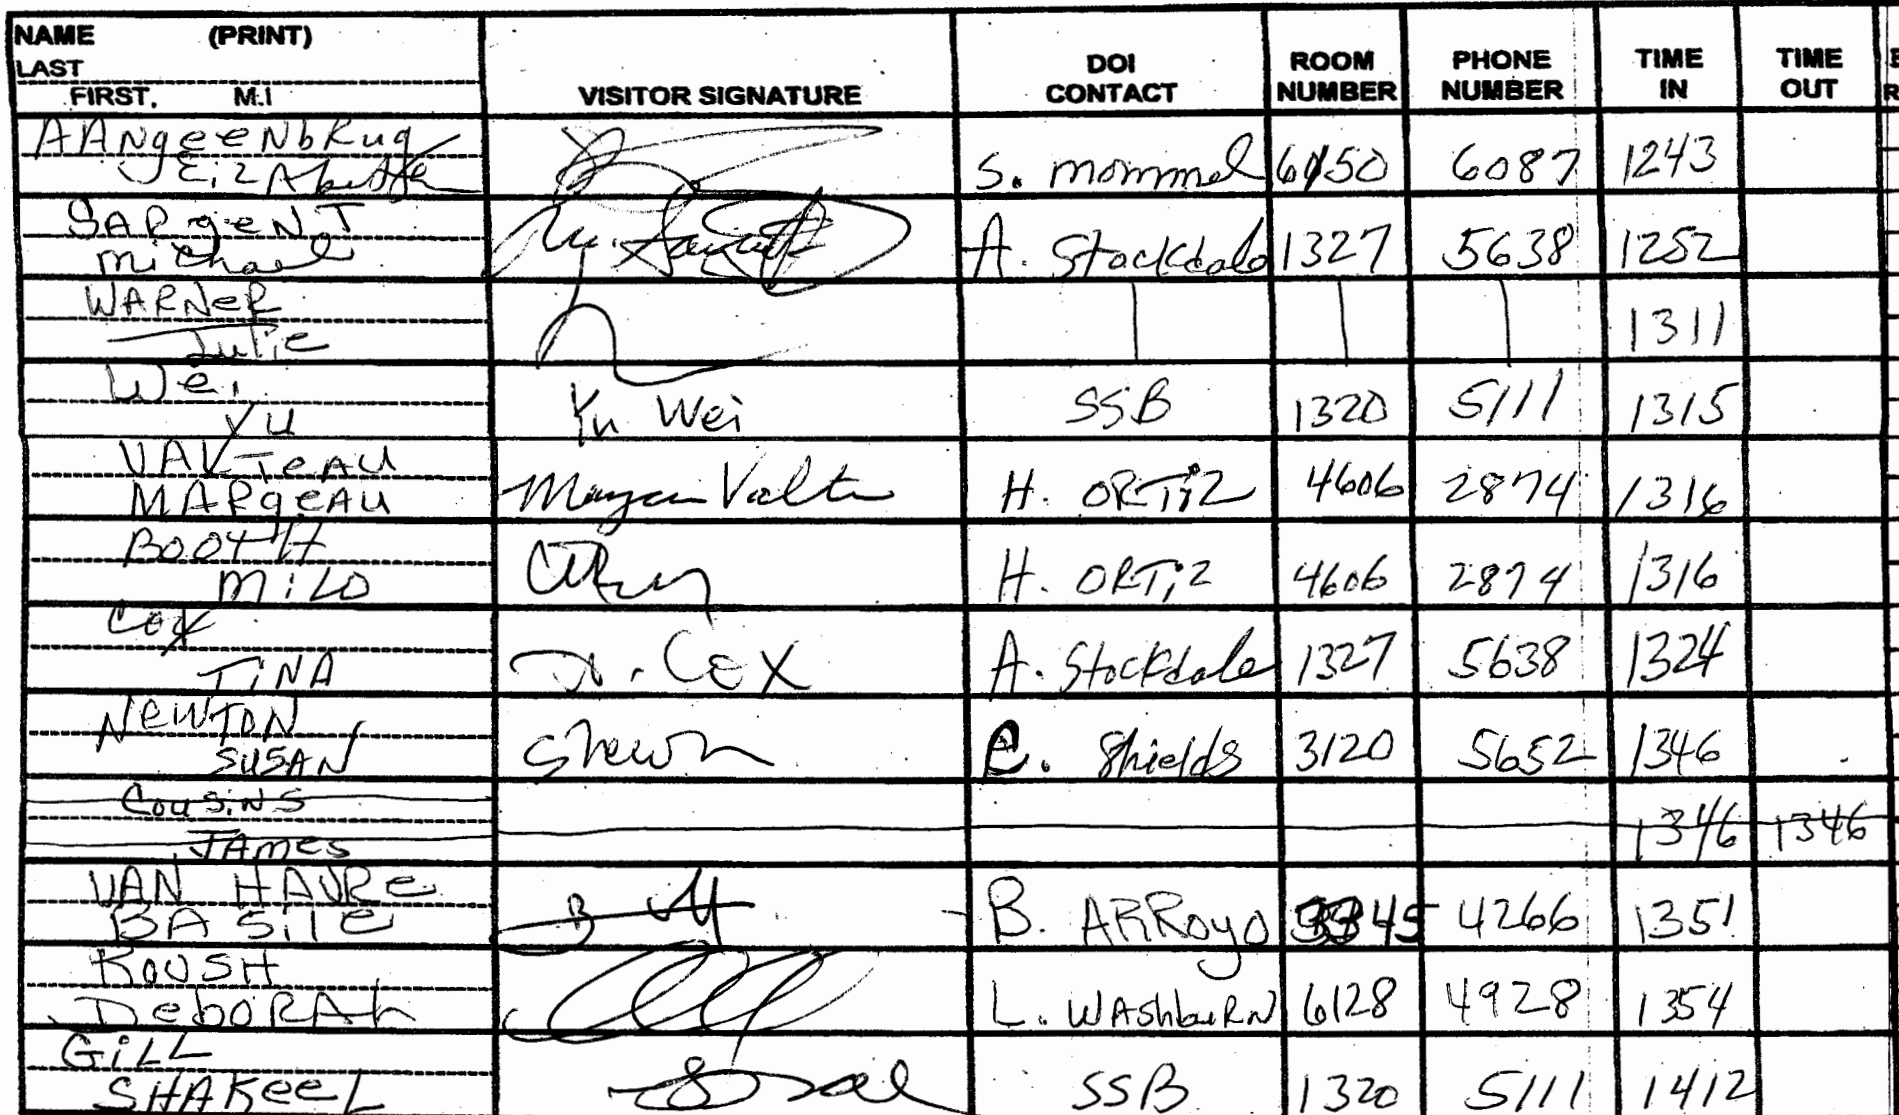 NAME (PRINT)
LAST
FIRST, M.I
VISITOR SIGNATURE
DOI CONTACT
ROOM NUMBER
PHONE NUMBER
TIME IN
TIME OUT
AANgeeNbRug
ElizAbeth
S. mommel 6150 6087 1243
SARgeNT
michael
A. Stockdale 1327 5638 1252
WARNeR
Julie
1311
Wei
YU
Yu Wei SSB 1320 5111 1315
VALTeAU
MARgeAU
H. ORTiz 4606 2874 1316
BOOTH
MiLO
H. ORTiz 4606 2874 1316
Cox
TiNA
T. Cox A. Stockdale 1327 5638 1324
NeWTON
SUSAN
C. Shields 3120 5652 1346
CousiNS
JAmes
1346 1346
VAN HAVRe
BASile
B. ARRoyo 3345 4266 1351
ROUSH
DeboRAh
L. WAShbuRN 6128 4928 1354
GiLL
SHAKeeL
SSB 1320 5111 1412